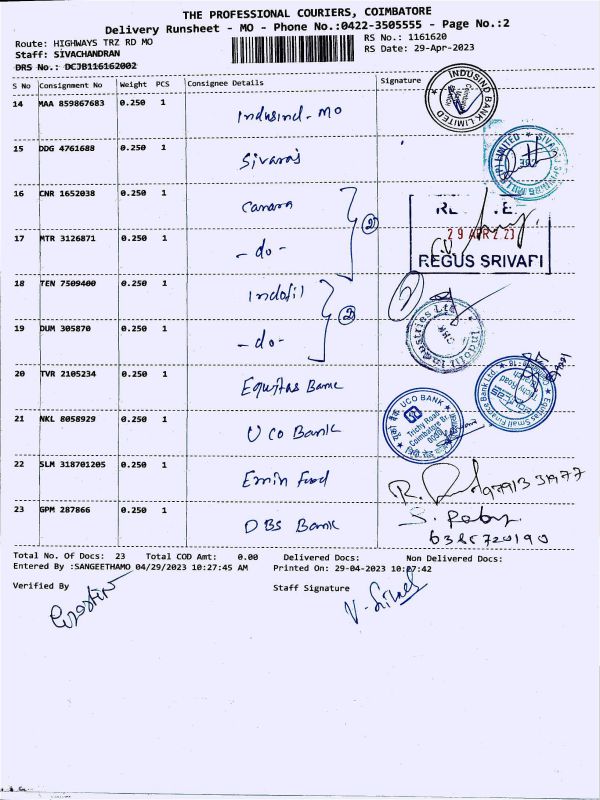 THE PROFESSIONAL COURIERS, COIMBATORE
Delivery Runsheet - MO - Phone No.:0422-3505555 - Page No.:2
Route: HIGHWAYS TRZ RD MO
RS No.: 1161620
Staff: SIVACHANDRAN
RS Date: 29-Apr-2023
DRS No.: DCJB116162002
S No Consignment No Weight PCS Consignee Details Signature
14 MAA 859867683 0.250 1 Indusind - MO
INDUSIND BANK LIMITED
15 DDG 4761688 0.250 1 Sivaraj
16 CNR 1652038 0.250 1 Canara
17 MTR 3126871 0.250 1 - do -
2
29 APR 2023
REGUS SRIVARI
18 TEN 7509400 0.250 1 Indofil
19 DUM 305870 0.250 1 - do -
2
Indofil Industries Ltd
20 TVR 2105234 0.250 1 Equitas Bank
Equitas Small Finance Bank Ltd
Trichy Road
21 NKL 8058929 0.250 1 UCO Bank
UCO BANK
Trichy Road
Coimbatore Br.
22 SLM 318701205 0.250 1 Emin Food
23 GPM 287866 0.250 1 DBS Bank
6385720190
Total No. Of Docs: 23 Total COD Amt: 0.00 Delivered Docs: Non Delivered Docs:
Entered By :SANGEETHAMO 04/29/2023 10:27:45 AM Printed On: 29-04-2023 10:27:42
Verified By Staff Signature